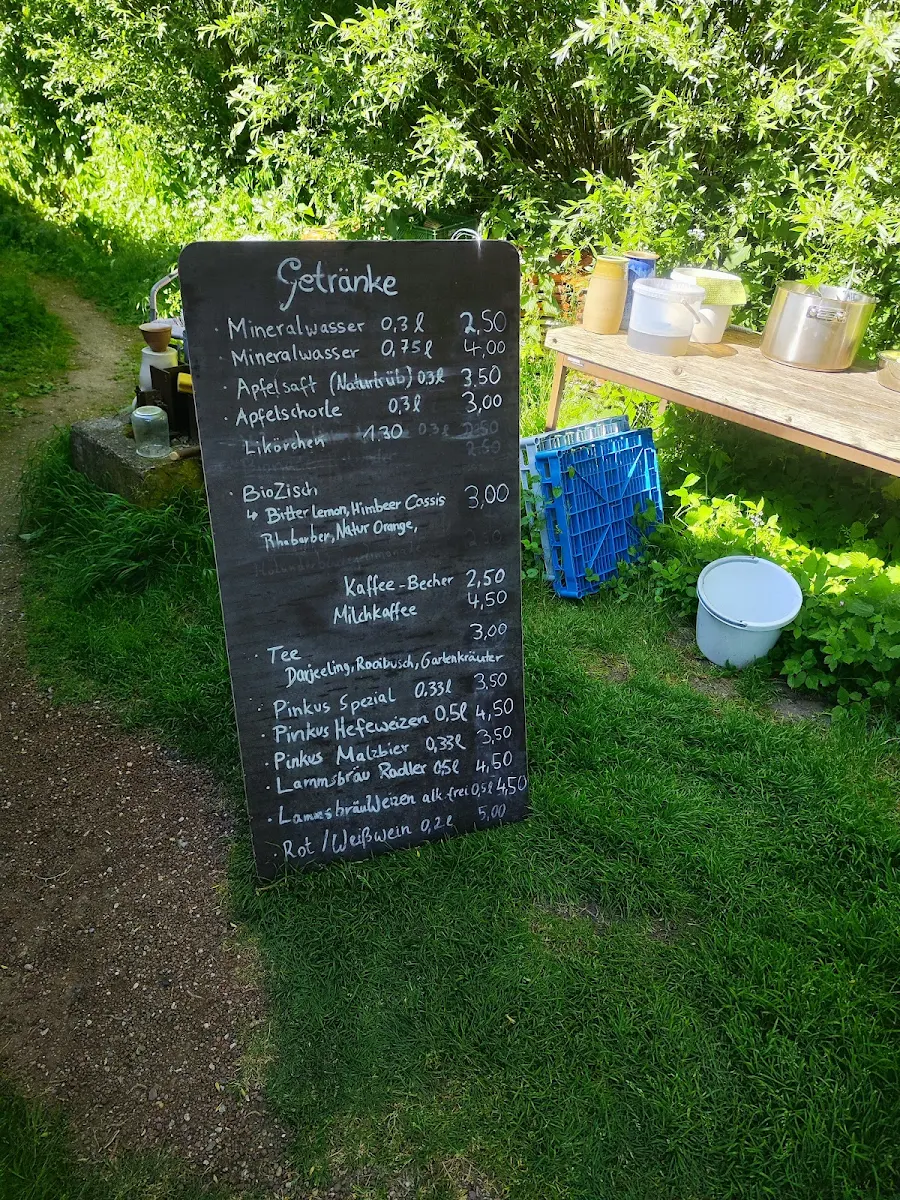 Getränke
· Mineralwasser 0,3 l 2,50
· Mineralwasser 0,75 l 4,00
· Apfelsaft (Naturtrüb) 0,3 l 3,50
· Apfelschorle 0,3 l 3,00
· Likörchen 1.30
· BioZisch 3,00
↳ Bitter Lemon, Himbeer Cassis
Rhabarber, Natur Orange,
Kaffee-Becher 2,50
Milchkaffee 4,50
3,00
· Tee
Darjeeling, Rooibusch, Gartenkräuter
· Pinkus Spezial 0,33 l 3,50
· Pinkus Hefeweizen 0,5 l 4,50
· Pinkus Malzbier 0,33 l 3,50
· Lammsbräu Radler 0,5 l 4,50
· Lammsbräu Weizen alk. frei 0,5 l 4,50
· Rot / Weißwein 0,2 l 5,00